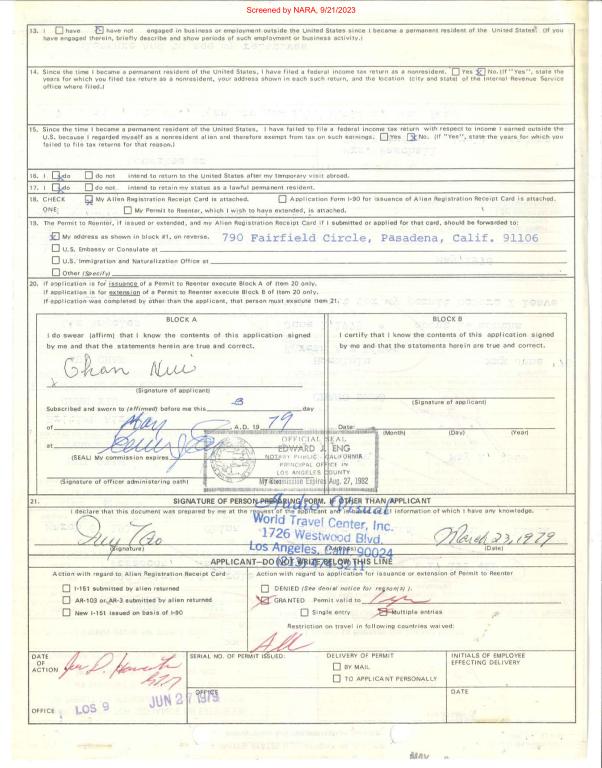 Screened by NARA, 9/21/2023
13. I have have not engaged in business or employment outside the United States since I became a permanent resident of the United States. (If you
have engaged therein, briefly describe and show periods of such employment or business activity.)
14. Since the time I became a permanent resident of the United States, I have filed a federal income tax return as a nonresident. Yes No. (If "Yes", state the
years for which you filed tax return as a nonresident, your address shown in each such return, and the location (city and state) of the Internal Revenue Service
office where filed.)
15. Since the time I became a permanent resident of the United States, I have failed to file a federal income tax return with respect to income I earned outside the
U.S. because I regarded myself as a nonresident alien and therefore exempt from tax on such earnings. Yes No. (If "Yes", state the years for which you
failed to file tax returns for that reason.)
16. I do do not intend to return to the United States after my temporary visit abroad.
17. I do do not intend to retain my status as a lawful permanent resident.
18. CHECK My Alien Registration Receipt Card is attached. Application Form I-90 for issuance of Alien Registration Receipt Card is attached.
ONE: My Permit to Reenter, which I wish to have extended, is attached.
19. The Permit to Reenter, if issued or extended, and my Alien Registration Receipt Card if I submitted or applied for that card, should be forwarded to:
My address as shown in block #1, on reverse. 790 Fairfield Circle, Pasadena, Calif. 91106
U.S. Embassy or Consulate at
U.S. Immigration and Naturalization Office at
Other (Specify)
20. If application is for issuance of a Permit to Reenter execute Block A of Item 20 only.
If application is for extension of a Permit to Reenter execute Block B of Item 20 only.
If application was completed by other than the applicant, that person must execute Item 21.
BLOCK A
I do swear (affirm) that I know the contents of this application signed
by me and that the statements herein are true and correct.
Chan Niu
(Signature of applicant)
Subscribed and sworn to (affirmed) before me this 3 day
of May A.D. 19 79
at
(SEAL) My commission expires
(Signature of officer administering oath)
BLOCK B
I certify that I know the contents of this application signed
by me and that the statements herein are true and correct.
(Signature of applicant)
Date:
(Month) (Day) (Year)
OFFICIAL SEAL
EDWARD J. ENG
NOTARY PUBLIC - CALIFORNIA
PRINCIPAL OFFICE IN
LOS ANGELES COUNTY
My Commission Expires Aug. 27, 1982
21. SIGNATURE OF PERSON PREPARING FORM, IF OTHER THAN APPLICANT
I declare that this document was prepared by me at the request of the applicant and is based on all information of which I have any knowledge.
Audio Visual
World Travel Center, Inc.
1726 Westwood Blvd.
Los Angeles, Calif. 90024
(213) 474-3211
(Signature) (Address) March 23, 1979 (Date)
APPLICANT—DO NOT WRITE BELOW THIS LINE
Action with regard to Alien Registration Receipt Card
I-151 submitted by alien returned
AR-103 or AR-3 submitted by alien returned
New I-151 issued on basis of I-90
Action with regard to application for issuance or extension of Permit to Reenter
DENIED (See denial notice for reason(s).)
GRANTED Permit valid to 1 yr
Single entry Multiple entries
Restriction on travel in following countries waived:
All
DATE
OF
ACTION
OFFICE LOS 9 JUN 27 1979
SERIAL NO. OF PERMIT ISSUED:
OFFICE
DELIVERY OF PERMIT
BY MAIL
TO APPLICANT PERSONALLY
INITIALS OF EMPLOYEE
EFFECTING DELIVERY
DATE
MAY